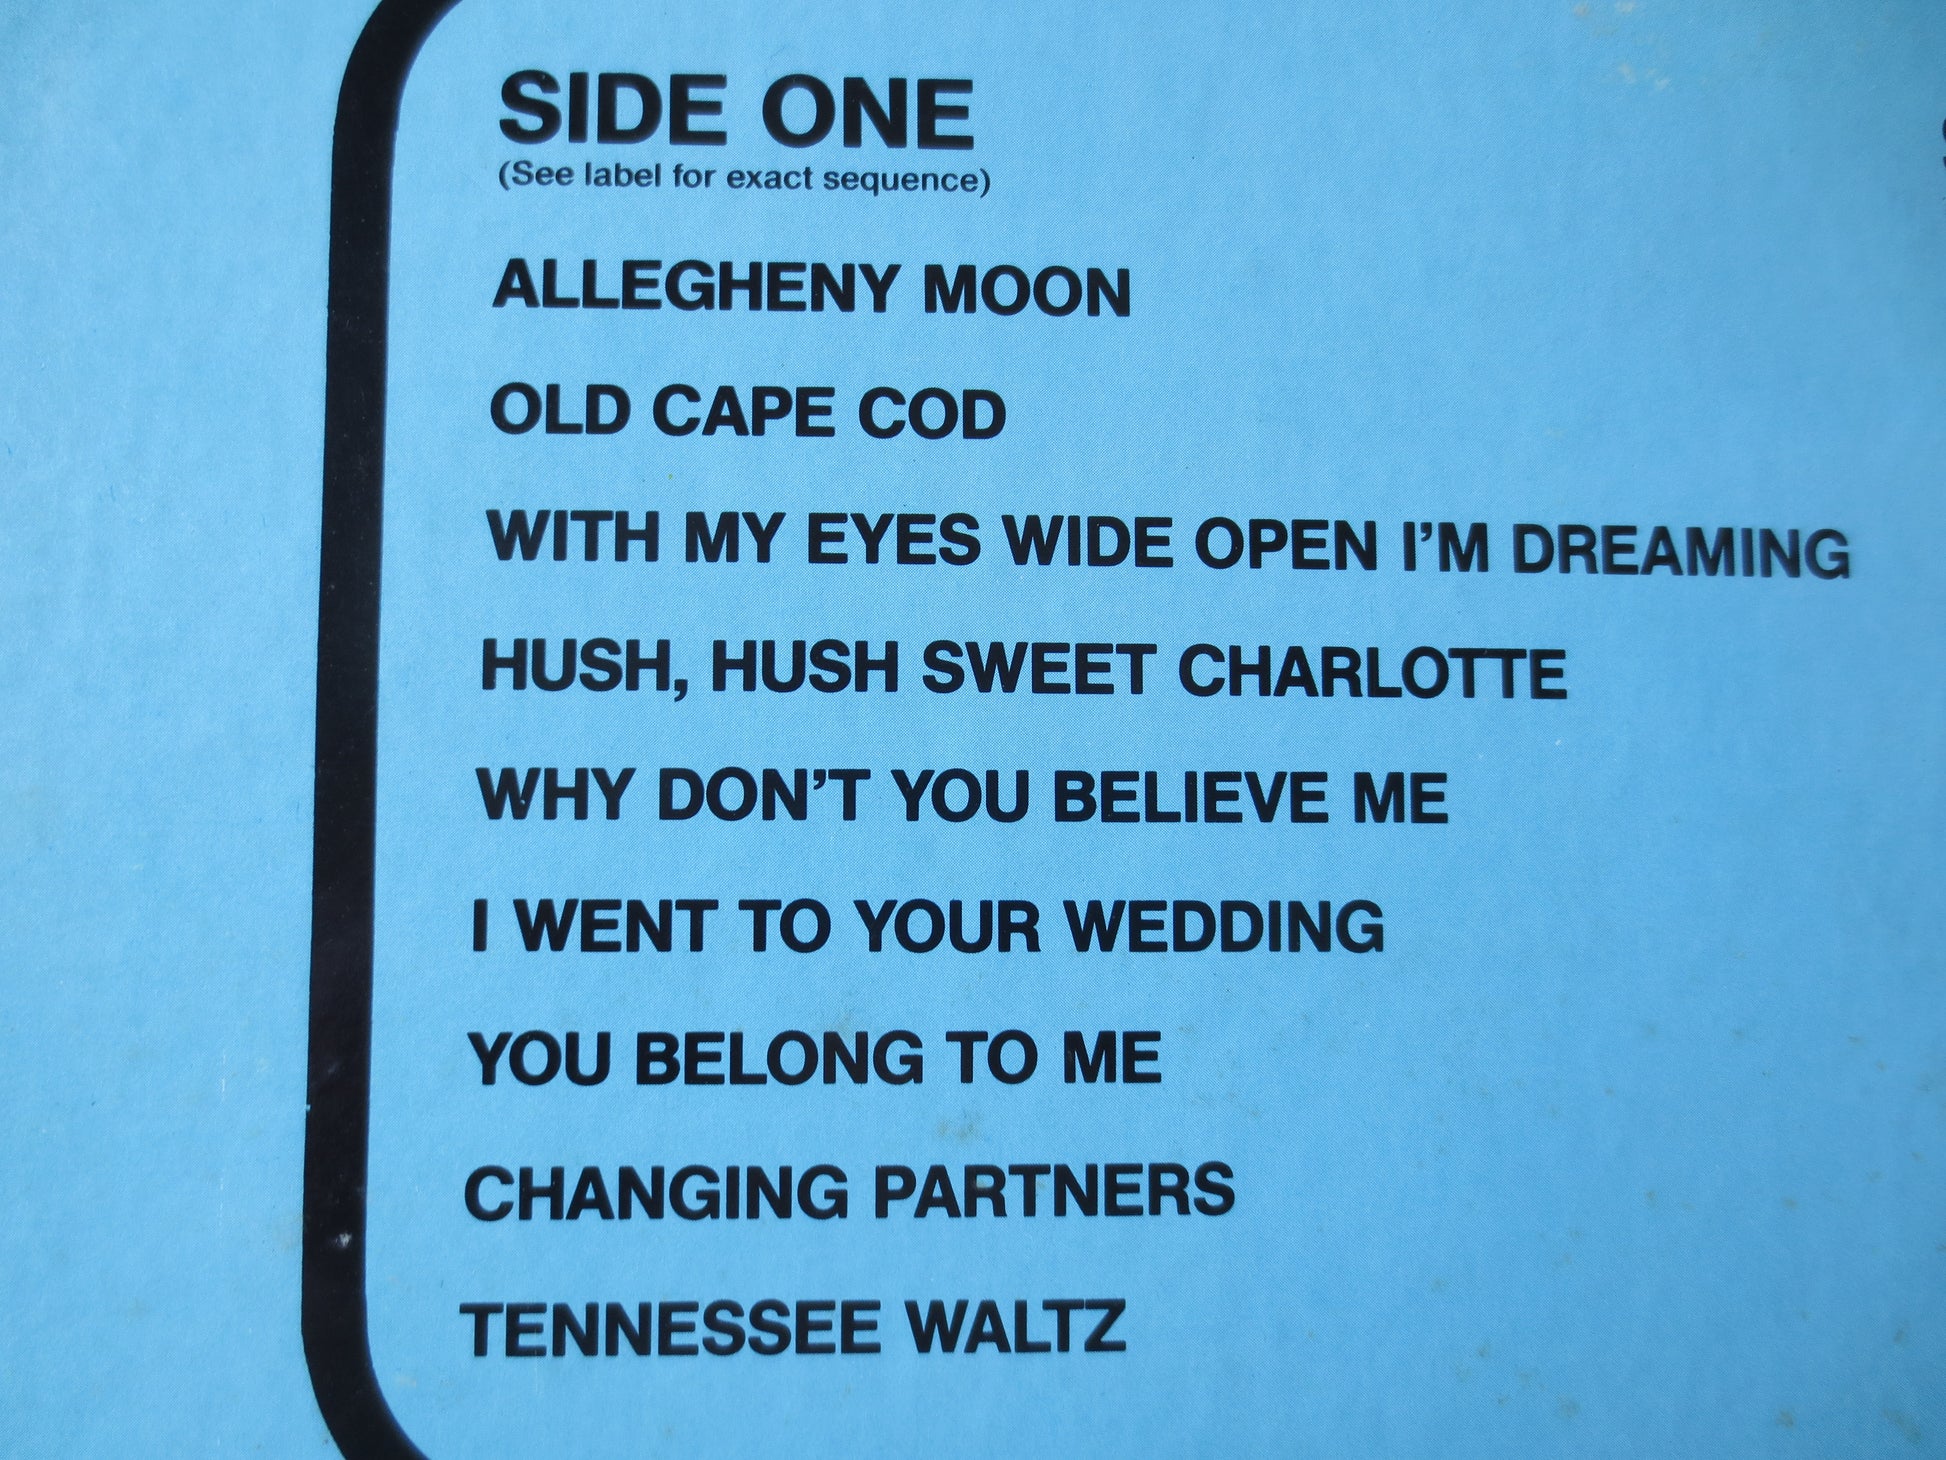 SIDE ONE
(See label for exact sequence)
ALLEGHENY MOON
OLD CAPE COD
WITH MY EYES WIDE OPEN I'M DREAMING
HUSH, HUSH SWEET CHARLOTTE
WHY DON'T YOU BELIEVE ME
I WENT TO YOUR WEDDING
YOU BELONG TO ME
CHANGING PARTNERS
TENNESSEE WALTZ